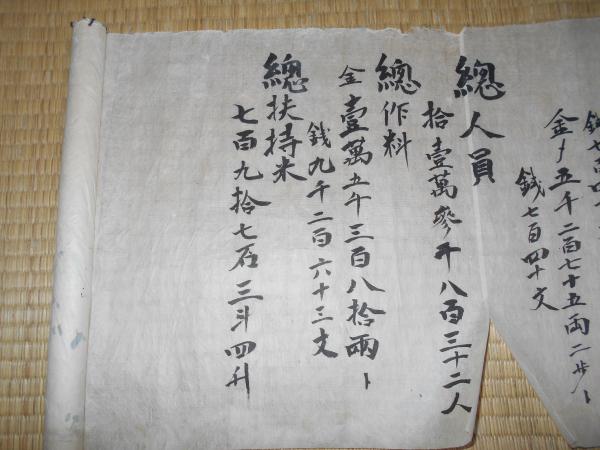 金〆五千二百七十五両二歩〆
銭七百四十文
總人員
拾壹萬參千八百三十二人
總作料
金壹萬五千三百八拾兩〆
銭九千二百六十三文
總扶持米
七百九拾七石三斗四升